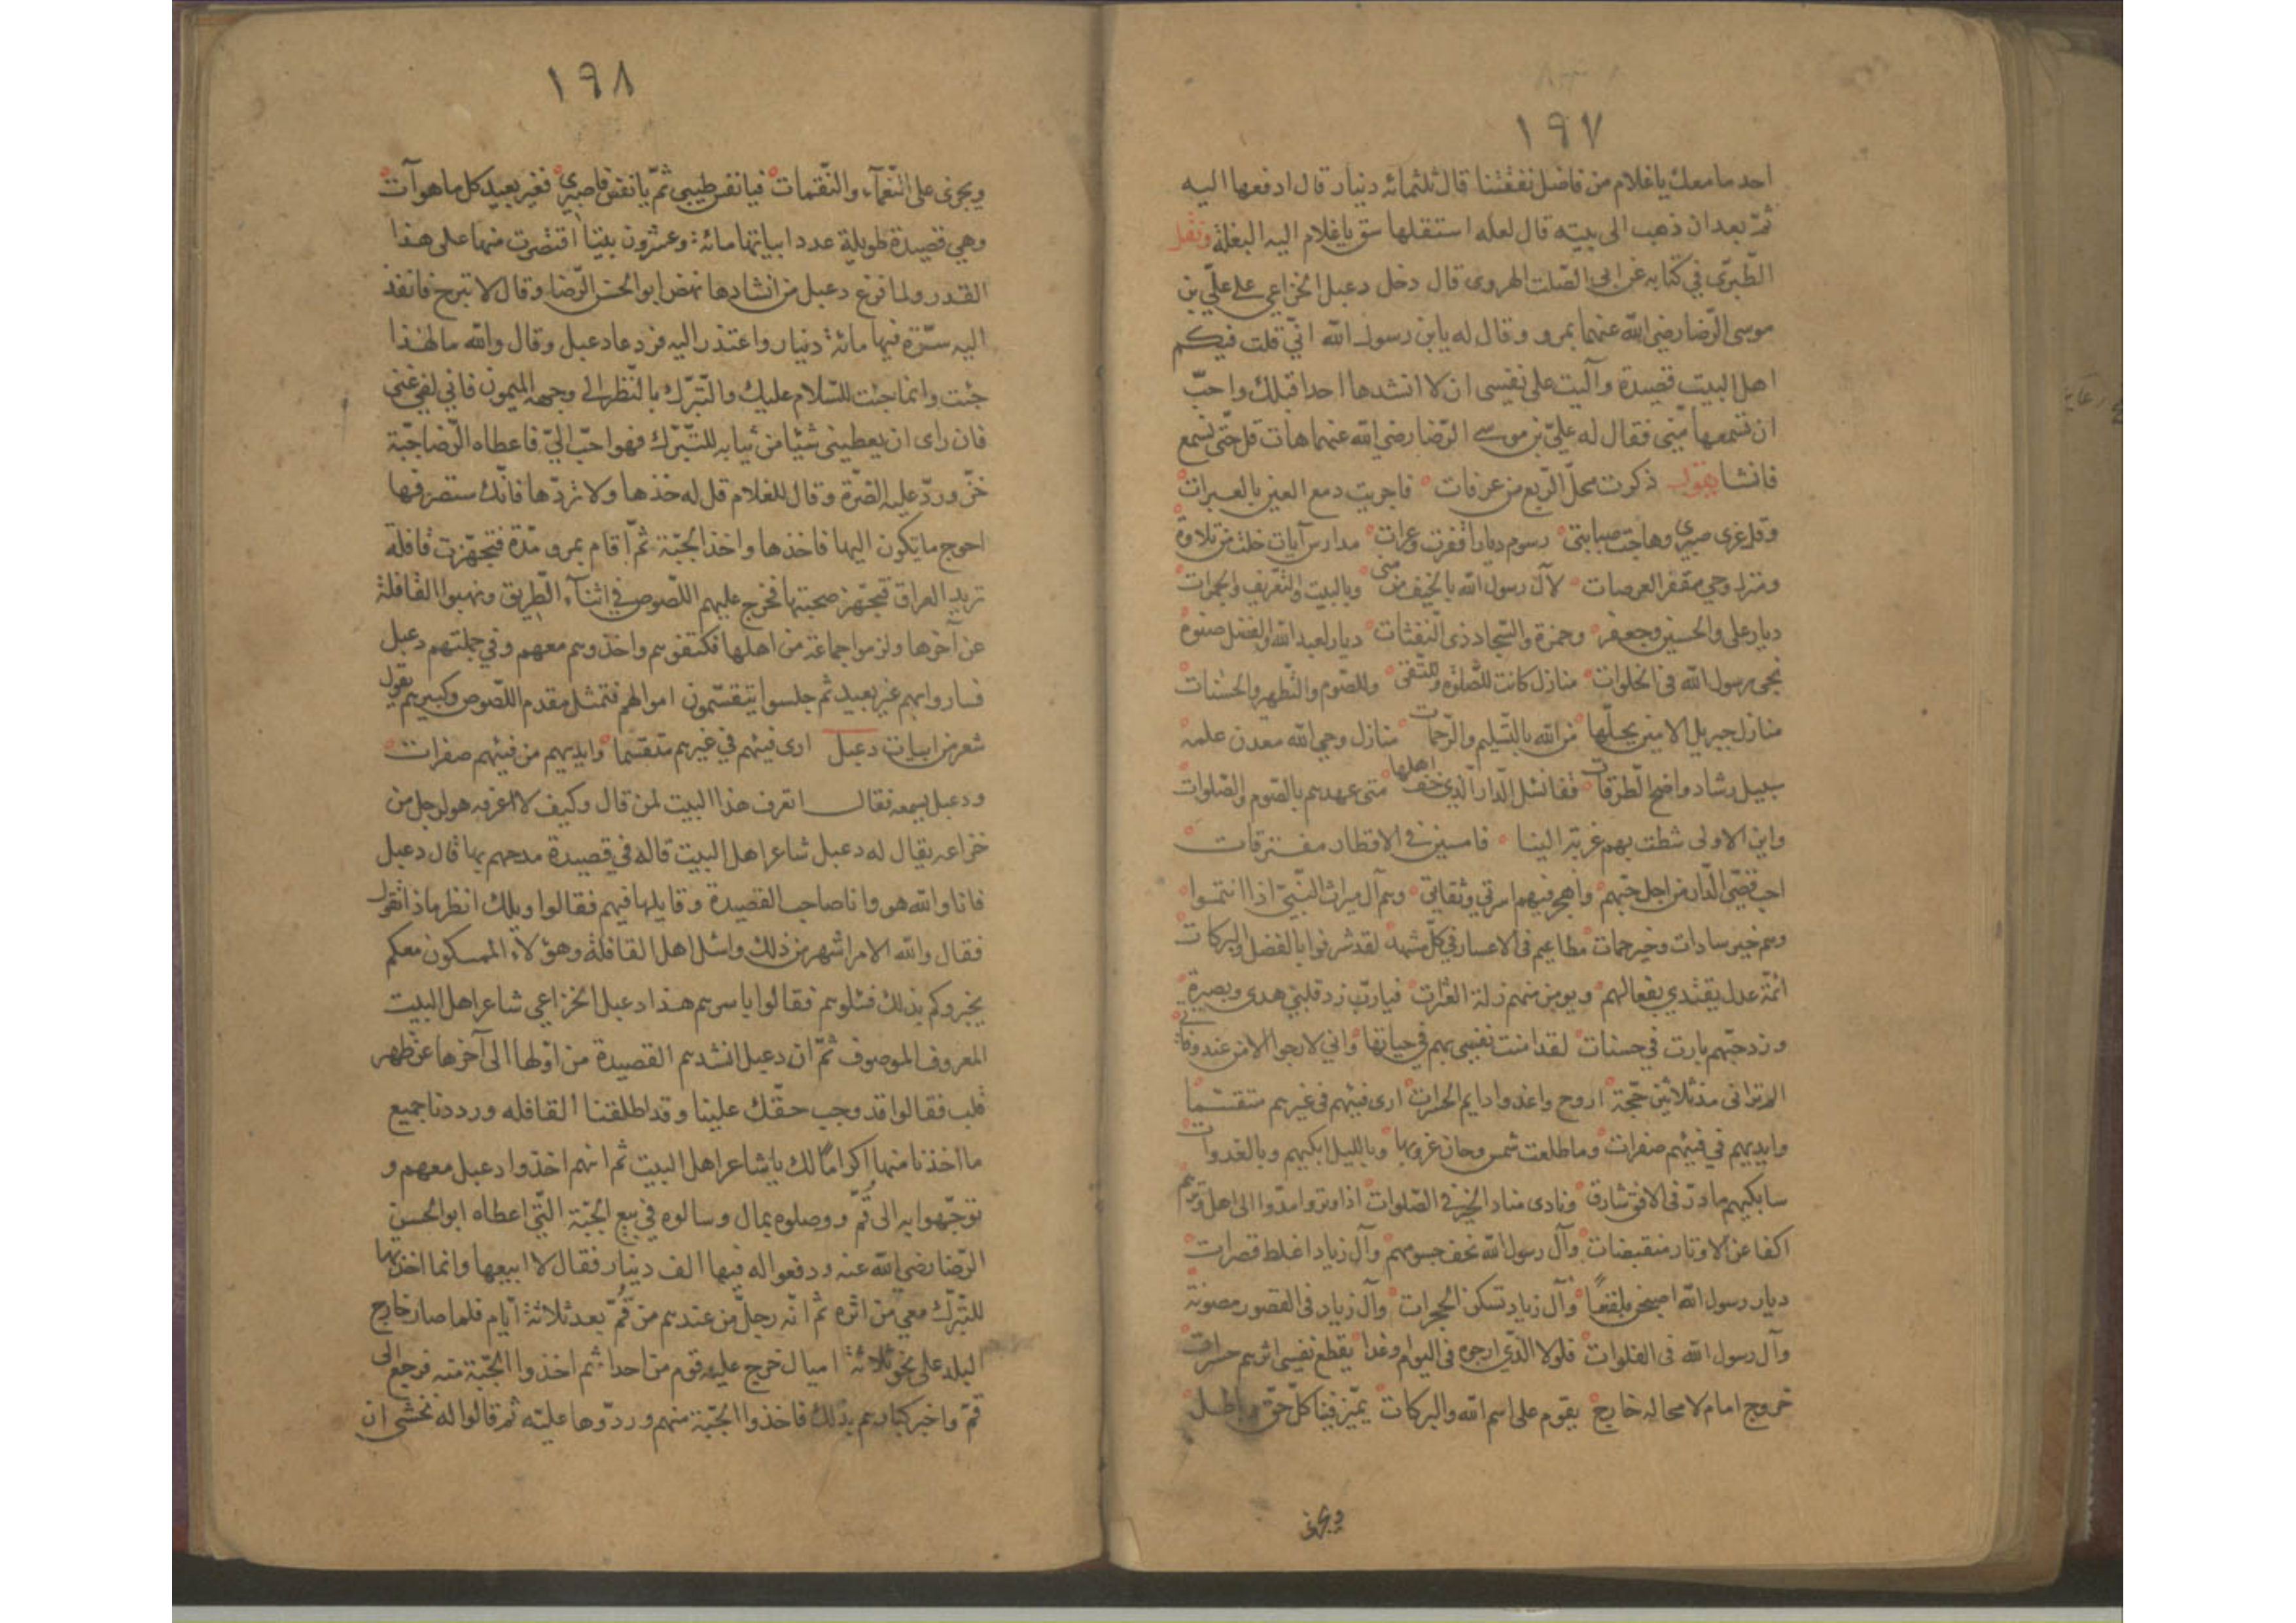 ١٩٧
احد ما معك يا غلام من فاضل نفقتنا قال ثلثمائه دنيار قال ادفعها اليه
ثمّ بعد ان ذهب الى بيته قال لعله استقلها سق يا غلام اليه البغلة ونقل
الطّبرىّ في كتابه عن ابى الصّلت الهروى قال دخل دعبل الخزاعي على علىّ بن
موسى الرّضا رضي الله عنهما بمرو وقال له يا بن رسول الله انّي قلت فيكم
اهل البيت قصيدة وآليت على نفسى ان لا انشدها احدا قبلك واحبّ
ان تسمعها منّى فقال له علىّ بن موسى الرّضا رضي الله عنهما هات قل حتّى نسمع
فانشا يقول ذكرت محلّ الرّبع من عرفات فاجريت دمع العين بالعبرات
وقل عرى صبرى وهاجت صبابتى رسوم ديار اقفرت وعرات مدارس آيات خلت من تلاوة
ومنزل وحي مقفر العرصات لآل رسول الله بالخيف من منى وبالبيت والتّعريف والجمرات
ديار على والحسين وجعفر وحمزة والسّجاد ذى الثّفثات ديار لعبد الله والفضل صنوه
نجى رسول الله فى الخلوات منازل كانت للصّلوة وللتّقى وللصّوم والتّطهير والحسنات
منازل جبريل الامين يحلّها من الله بالتّسليم والرّحمات منازل وحي الله معدن علمه
سبيل رشاد واضح الطّرقات قفا نسئل الدّار الّذى خف اهلها متى عهدهم بالصّوم والصّلوات
واين الاولى شطت بهم غربة الينا فامسين فى الاقطار مفترقات
احب قصّى الدّار من اجل حبّهم واهجر فيهم اسرتي وثقاتي وهم آل ميراث النّبيّ اذا انتموا
وهم خير سادات وخير حمات مطاعيم فى الاعسار في كلّ مشهد لقد شرفوا بالفضل والبركات
ائمّة عدل يقتدي بفعالهم ويومن منهم زلة العثرات فيا ربّ زد قلبي هدى وبصيرة
وزد حبّهم يا رب في حسنات لقد امنت نفسى بهم في حياتها وانّي لارجوا الامن عند وفاتي
الم تر انى مذ ثلاثين حجّة اروح واغدوا دايم الحسرات ارى فيئهم فى غيرهم متقسّما
وايديهم في فيئهم صفرات وما طلعت شمس وحان غروبها وبالليل ابكيهم وبالغدوات
سابكيهم ما درّ فى الافق شارق ونادى مناد الخير فى الصّلوات اذا وتروا مدّوا الى اهل وترهم
اكفا عن الاوتار منقبضات وآل رسول الله نحف جسومهم وآل زياد اغلظ قصرات
ديار رسول الله اصبحن بلقعاً وآل زياد تسكن الحجرات وآل زياد فى القصور مصونة
وآل رسول الله فى الفلوات فلولا الّذي ارجوه فى اليوام وغدا يقطع نفسى اثرهم حسرات
خروج امام لا محاله خارج يقوم على اسم الله والبركات يميّز فينا كلّ حقّ وباطل
ويجزى
١٩٨
ويجزى على النّعمآء والنّقمات فيا نفس طيبى ثمّ يا نفس فاصبرى فغير بعيد كل ما هو آت
وهي قصيدة طويلة عدد ابياتها مائة وعشرون بيتا اقتصرت منها على هذا
القدر ولما فرغ دعبل من انشادها نهض ابو الحسن الرّضا وقال لا تبرح فانفذ
اليه سرّة فيها مائة دنيار واعتذر اليه فردعا دعبل وقال والله ما لهذا
جئت وانما جئت للسّلام عليك والتّبرّك بالنّظر الى وجهه الميمون فاني لفى غنى
فان راى ان يعطينى شيئا من ثيابه للتّبرّك فهو احبّ الىّ فاعطاه الرّضا جبّة
خزّ وردّ عليه الصّرّة وقال للغلام قل له خذها ولا تردّها فانّك ستصرفها
احوج ما يكون اليها فاخذها واخذ الجبّة ثمّ اقام بمرو مدّة فتجهّزت قافلة
تريد العراق فتجهّز صحبتها فخرج عليهم اللّصوص في اثنآء الطّريق ونهبوا القافلة
عن آخرها ولزموا جماعة من اهلها فكتفوهم واخذوهم معهم وفي جملتهم دعبل
فساروا بهم غير بعيد ثم جلسوا يتقسّمون اموالهم فتمثل مقدم اللّصوص وكبيرهم يقول
شعر من ابيات دعبل ارى فيئهم في غيرهم متقسّما وايديهم من فيئهم صفرات
ودعبل يسمعه فقال اتعرف هذا البيت لمن قال وكيف لا اعرفه هو لرجل من
خزاعه يقال له دعبل شاعر اهل البيت قاله في قصيدة مدحهم بها قال دعبل
فانا والله هو وانا صاحب القصيدة وقايلها فيهم فقالوا ويلك انظر ماذا تقول
فقال والله الامر اشهر من ذلك واسئل اهل القافلة وهؤلاء الممسكون معكم
يخبروكم بذلك فسئلوهم فقالوا باسرهم هذا دعبل الخزاعي شاعر اهل البيت
المعروف الموصوف ثمّ ان دعبل انشدهم القصيدة من اوّلها الى آخرها عن ظهر
قلب فقالوا قد وجب حقّك علينا وقد اطلقنا القافله ورددنا جميع
ما اخذنا منها اكراماً لك يا شاعر اهل البيت ثم انهم اخذوا دعبل معهم و
توجّهوا به الى قُمّ ووصلوه بمال وسالوه في بيع الجبّة الّتي اعطاه ابو الحسن
الرّضا رضي الله عنه ودفعوا له فيها الف دينار فقال لا ابيعها وانما اخذتها
للتّبرّك معي من اثره ثم انّه رحل من عندهم من قُمّ بعد ثلاثة ايّام فلما صار خارج
البلد على نحو ثلاثة اميال خرج عليه قوم من احداثهم اخذوا الجبّة منه فرجع الى
قمّ واخبر كبارهم بذلك فاخذوا الجبّة منهم وردّوها عليه ثم قالوا له نخشى ان